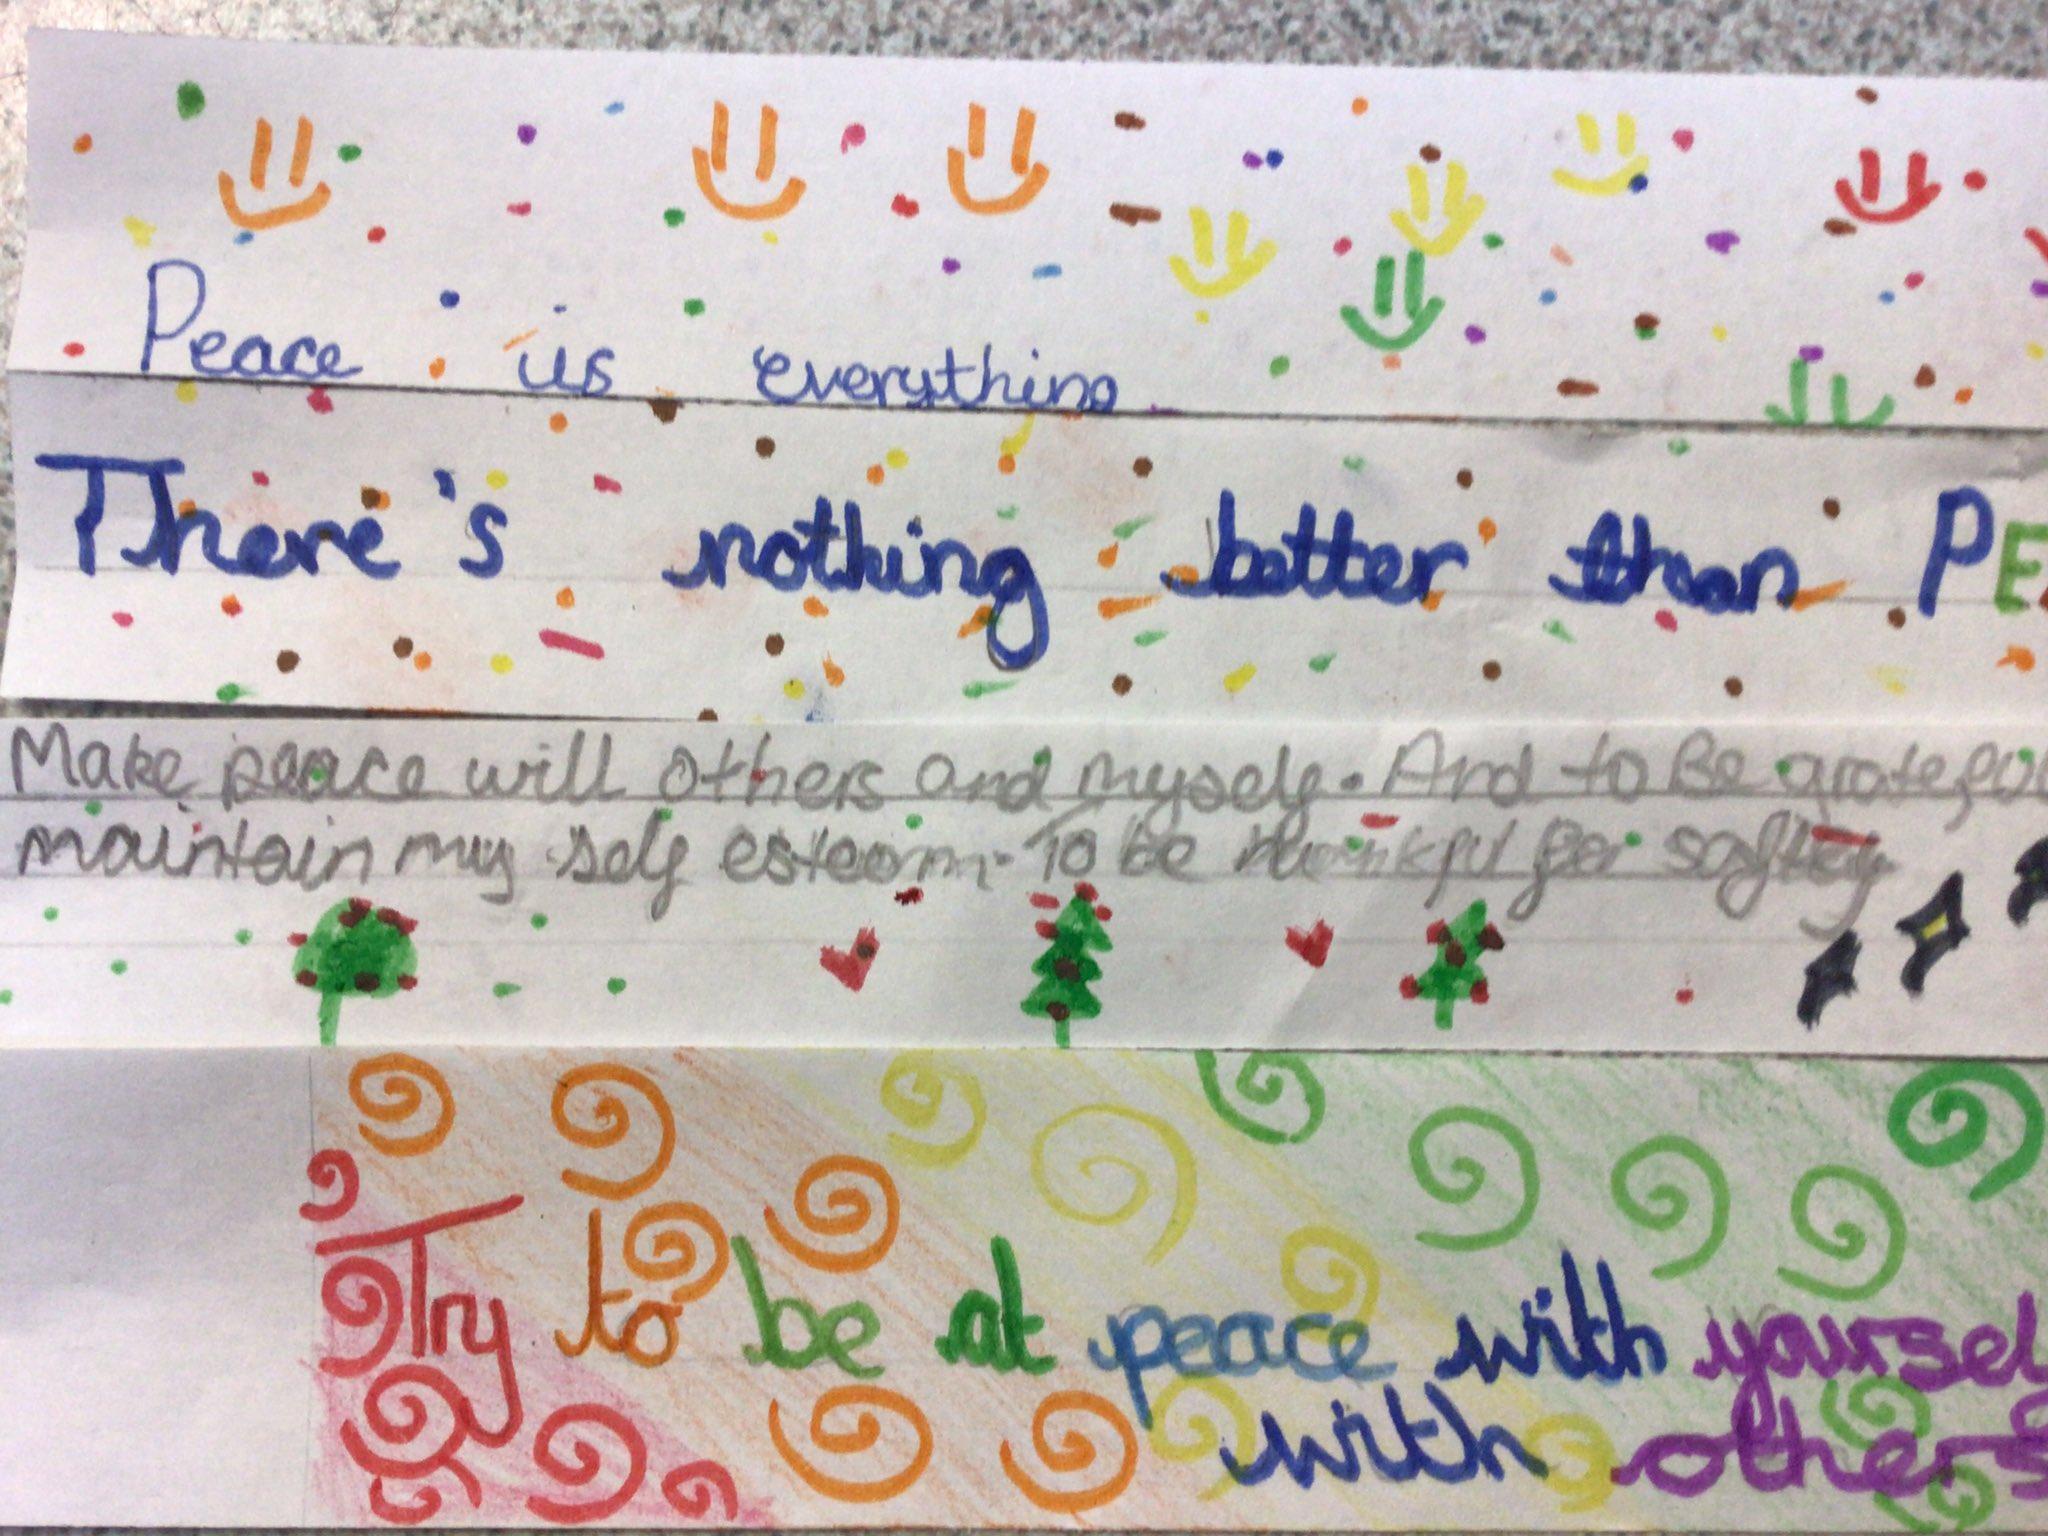 Peace is everything
There's nothing better than PE
Make peace will others and myself. And to Be grateful
maintain my self esteem. To be thankful for saftey
Try to be at peace with yoursel
with others